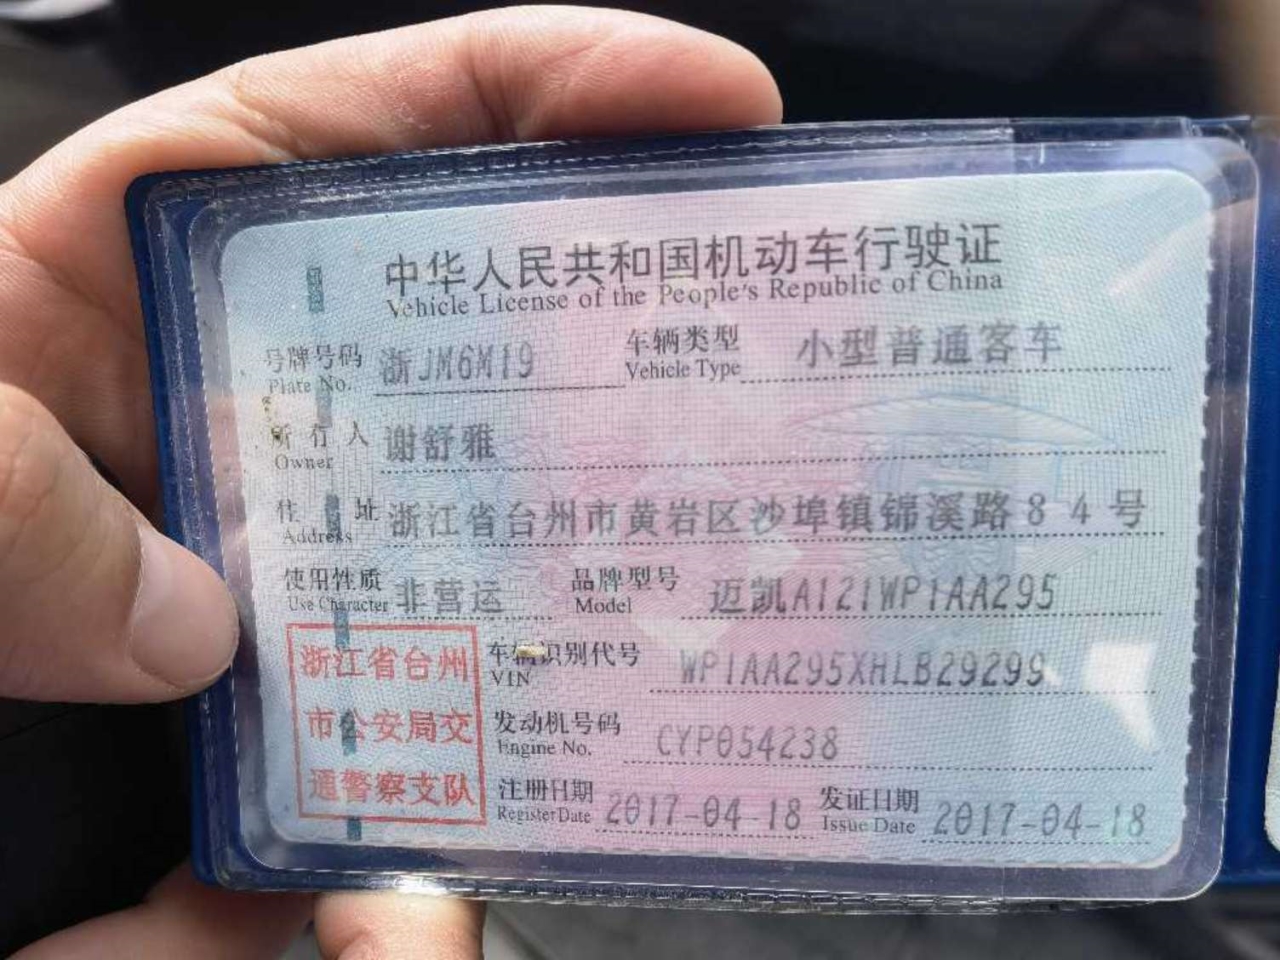 中华人民共和国机动车行驶证
Vehicle License of the People's Republic of China
号牌号码 浙JM6M19 车辆类型 小型普通客车
Plate No. Vehicle Type
所有人 谢舒雅
Owner
住址 浙江省台州市黄岩区沙埠镇锦溪路84号
Address
使用性质 非营运 品牌型号 迈凯A121WP1AA295
Use Character Model
浙江省台州 车辆识别代号 WP1AA295XHLB29299
VIN
市公安局交 发动机号码 CYP054238
Engine No.
通警察支队 注册日期 2017-04-18 发证日期 2017-04-18
Register Date Issue Date